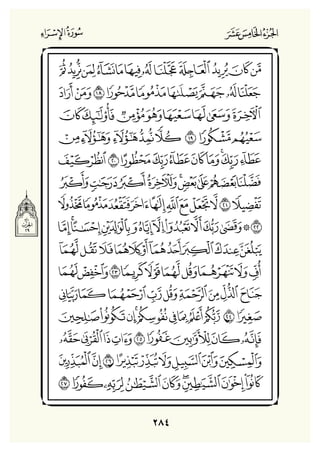 الجُزْءُ الخَامِسَ عَشَرَ
سُورَةُ الإِسْرَاءِ
مَّن كَانَ يُرِيدُ ٱلْعَاجِلَةَ عَجَّلْنَا لَهُۥ فِيهَا مَا نَشَآءُ لِمَن نُّرِيدُ ثُمَّ
جَعَلْنَا لَهُۥ جَهَنَّمَ يَصْلَىٰهَا مَذْمُومًا مَّدْحُورًا ١٨ وَمَنْ أَرَادَ
ٱلْـَٔاخِرَةَ وَسَعَىٰ لَهَا سَعْيَهَا وَهُوَ مُؤْمِنٌ فَأُو۟لَـٰٓئِكَ كَانَ
سَعْيُهُم مَّشْكُورًا ١٩ كُلًّا نُّمِدُّ هَـٰٓؤُلَآءِ وَهَـٰٓؤُلَآءِ مِنْ
عَطَآءِ رَبِّكَ ۚ وَمَا كَانَ عَطَآءُ رَبِّكَ مَحْظُورًا ٢٠ ٱنظُرْ كَيْفَ
فَضَّلْنَا بَعْضَهُمْ عَلَىٰ بَعْضٍ ۚ وَلَلْـَٔاخِرَةُ أَكْبَرُ دَرَجَـٰتٍ وَأَكْبَرُ
تَفْضِيلًا ٢١ لَّا تَجْعَلْ مَعَ ٱللَّهِ إِلَـٰهًا ءَاخَرَ فَتَقْعُدَ مَذْمُومًا مَّخْذُولًا
٢٢ ۞ وَقَضَىٰ رَبُّكَ أَلَّا تَعْبُدُوٓا۟ إِلَّآ إِيَّاهُ وَبِٱلْوَٰلِدَيْنِ إِحْسَـٰنًا ۚ إِمَّا
يَبْلُغَنَّ عِندَكَ ٱلْكِبَرَ أَحَدُهُمَآ أَوْ كِلَاهُمَا فَلَا تَقُل لَّهُمَآ
أُفٍّ وَلَا تَنْهَرْهُمَا وَقُل لَّهُمَا قَوْلًا كَرِيمًا ٢٣ وَٱخْفِضْ لَهُمَا
جَنَاحَ ٱلذُّلِّ مِنَ ٱلرَّحْمَةِ وَقُل رَّبِّ ٱرْحَمْهُمَا كَمَا رَبَّيَانِى
صَغِيرًا ٢٤ رَّبُّكُمْ أَعْلَمُ بِمَا فِى نُفُوسِكُمْ ۚ إِن تَكُونُوا۟ صَـٰلِحِينَ
فَإِنَّهُۥ كَانَ لِلْأَوَّٰبِينَ غَفُورًا ٢٥ وَءَاتِ ذَا ٱلْقُرْبَىٰ حَقَّهُۥ
وَٱلْمِسْكِينَ وَٱبْنَ ٱلسَّبِيلِ وَلَا تُبَذِّرْ تَبْذِيرًا ٢٦ إِنَّ ٱلْمُبَذِّرِينَ
كَانُوٓا۟ إِخْوَٰنَ ٱلشَّيَـٰطِينِ ۖ وَكَانَ ٱلشَّيْطَـٰنُ لِرَبِّهِۦ كَفُورًا ٢٧
٢٨٤